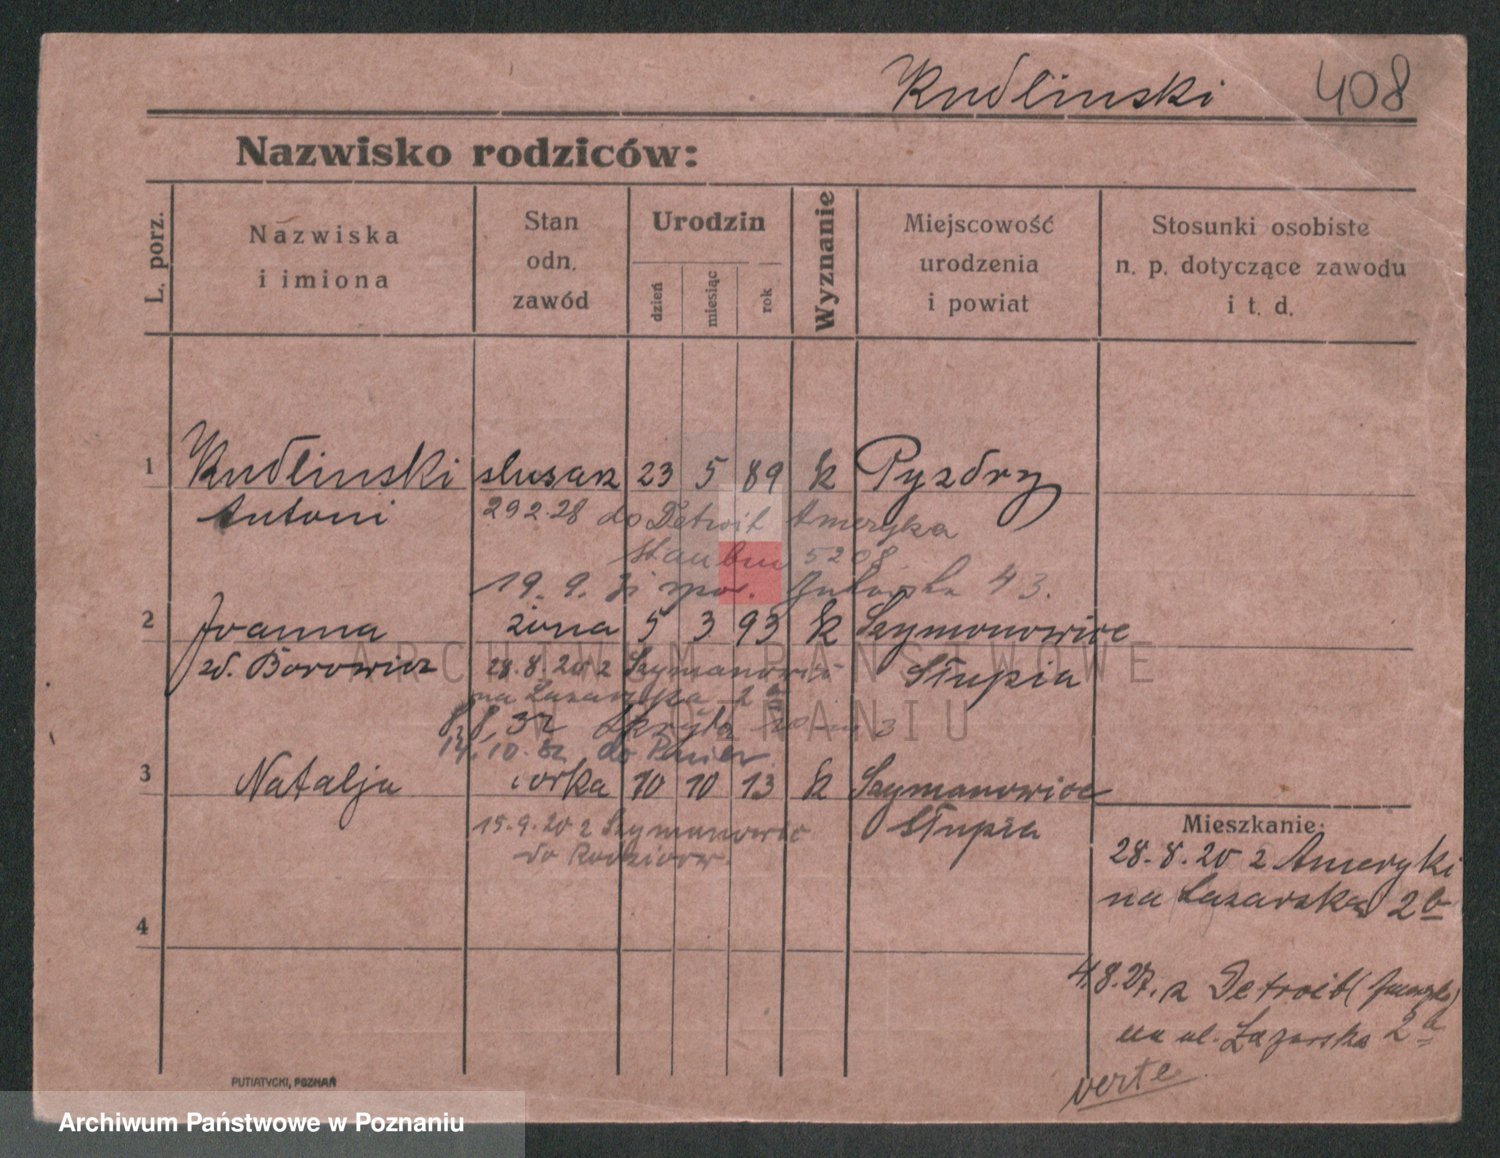 Kudlinski 408
Nazwisko rodziców:
L. porz.
Nazwiska
i imiona
Stan
odn.
zawód
Urodzin
dzień
miesiąc
rok
Wyznanie
Miejscowość
urodzenia
i powiat
Stosunki osobiste
n. p. dotyczące zawodu
i t. d.
1 Kudlinski slusarz 23 5 89 k Pyzdry
Antoni
29 2. 28 do Detroit Ameryka
5208
19. 9. 43.
2 Joanna żona 5 3 93 k Szymonowice
zd. Borowicz Słupia
28. 8. 20 z Szymanowic
na Lazarska 2
8. 8. 32
14. 10. do
3 Natalja corka 10 10 13 k Szymanowice
Słupia
15. 9. 20 z Szymanowic
do Rodziców.
4
Mieszkanie:
28. 8. 20 z Ameryki
na Lazarska 2b
4. 8. 27. z Detroit (Ameryka)
na ul. Łazarska 2a
verte
PUTIATYCKI, POZNAŃ
ARCHIWUM PAŃSTWOWE
W POZNANIU
Archiwum Państwowe w Poznaniu